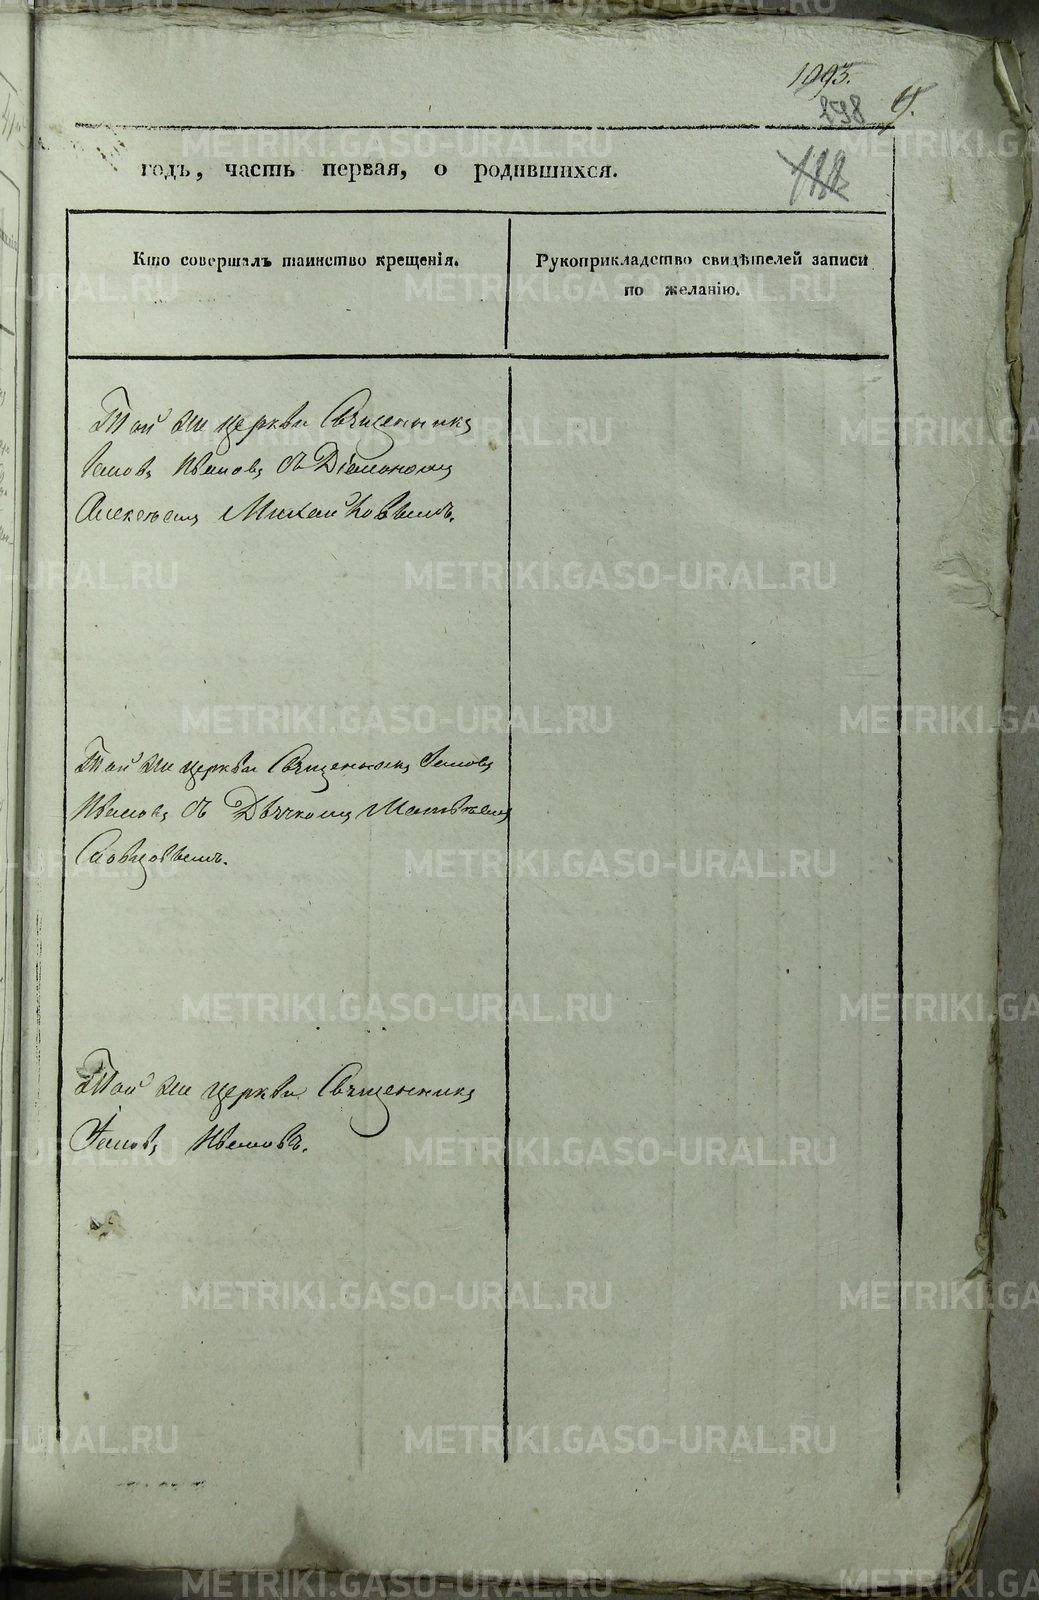 1093.
258
годъ, часть первая, о родившихся.
Кто совершалъ таинство крещенія.
Рукоприкладство свидѣтелей записи
по желанію.
Той же церкви Священникъ
Іаковъ Ивановъ съ Діакономъ
Алексѣемъ
Той же церкви Священникъ Іаковъ
Ивановъ съ Дьячкомъ Матвѣемъ
Словцовымъ.
Той же церкви Священникъ
Іаковъ Ивановъ.
METRIKI.GASO-URAL.RU